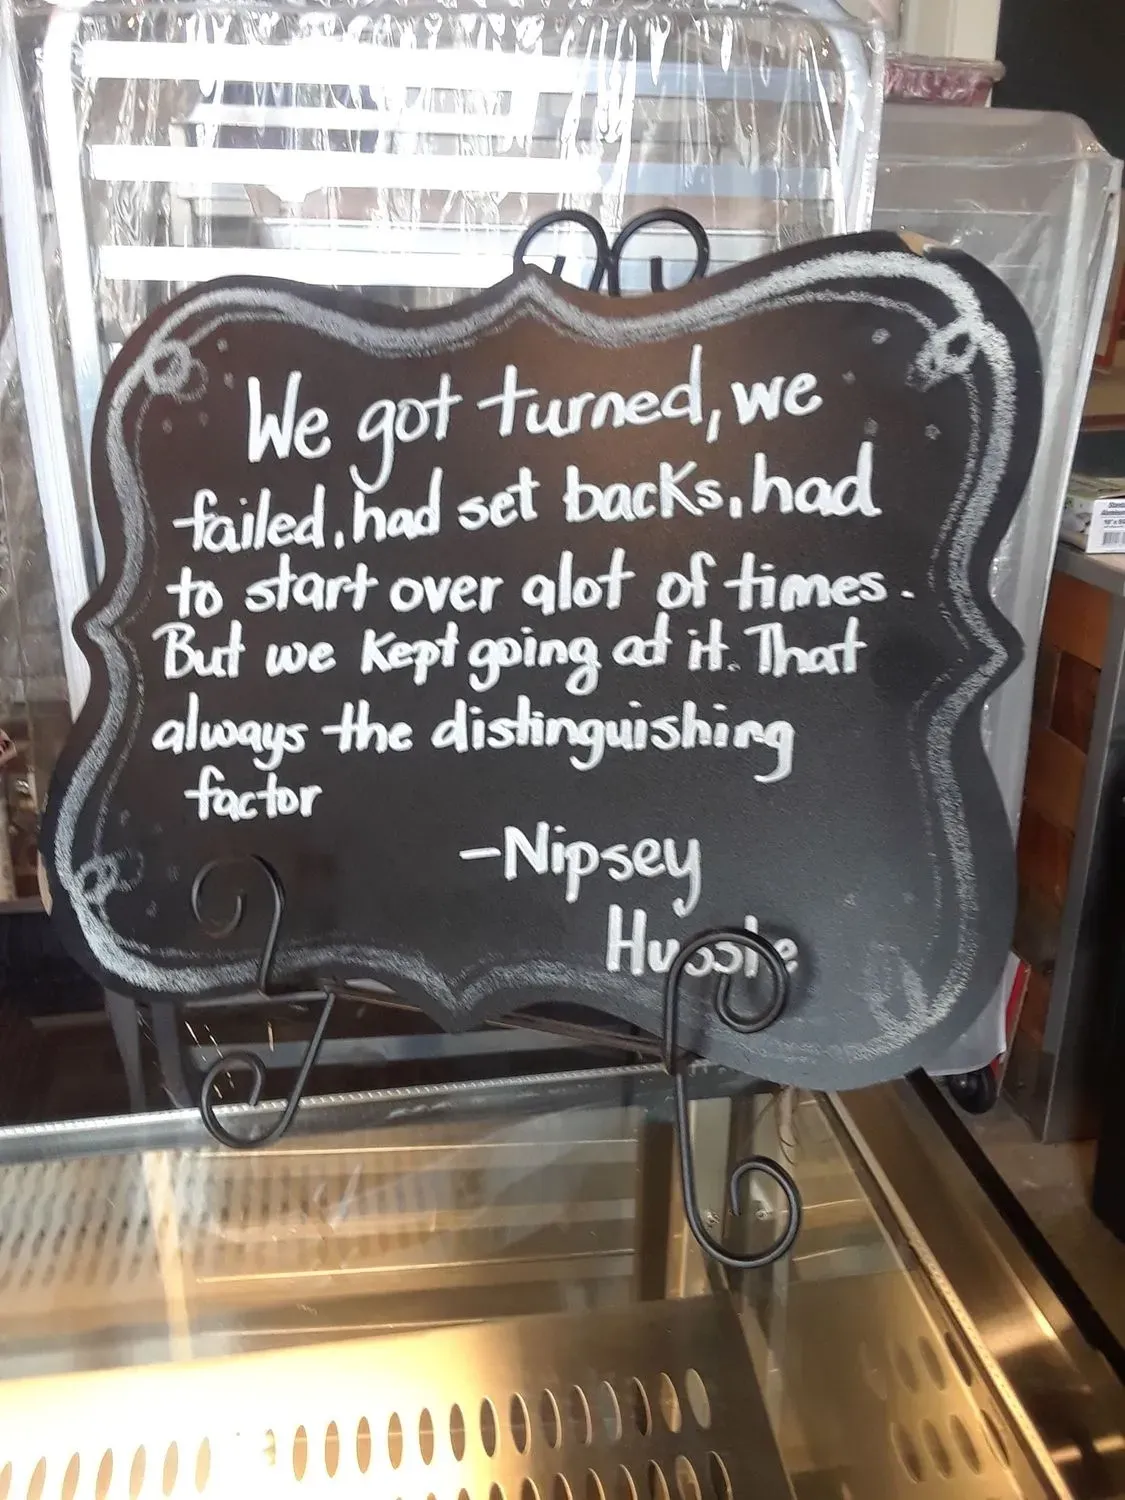 We got turned, we
failed, had set backs, had
to start over alot of times.
But we kept going at it. That
always the distinguishing
factor
-Nipsey
Hussle